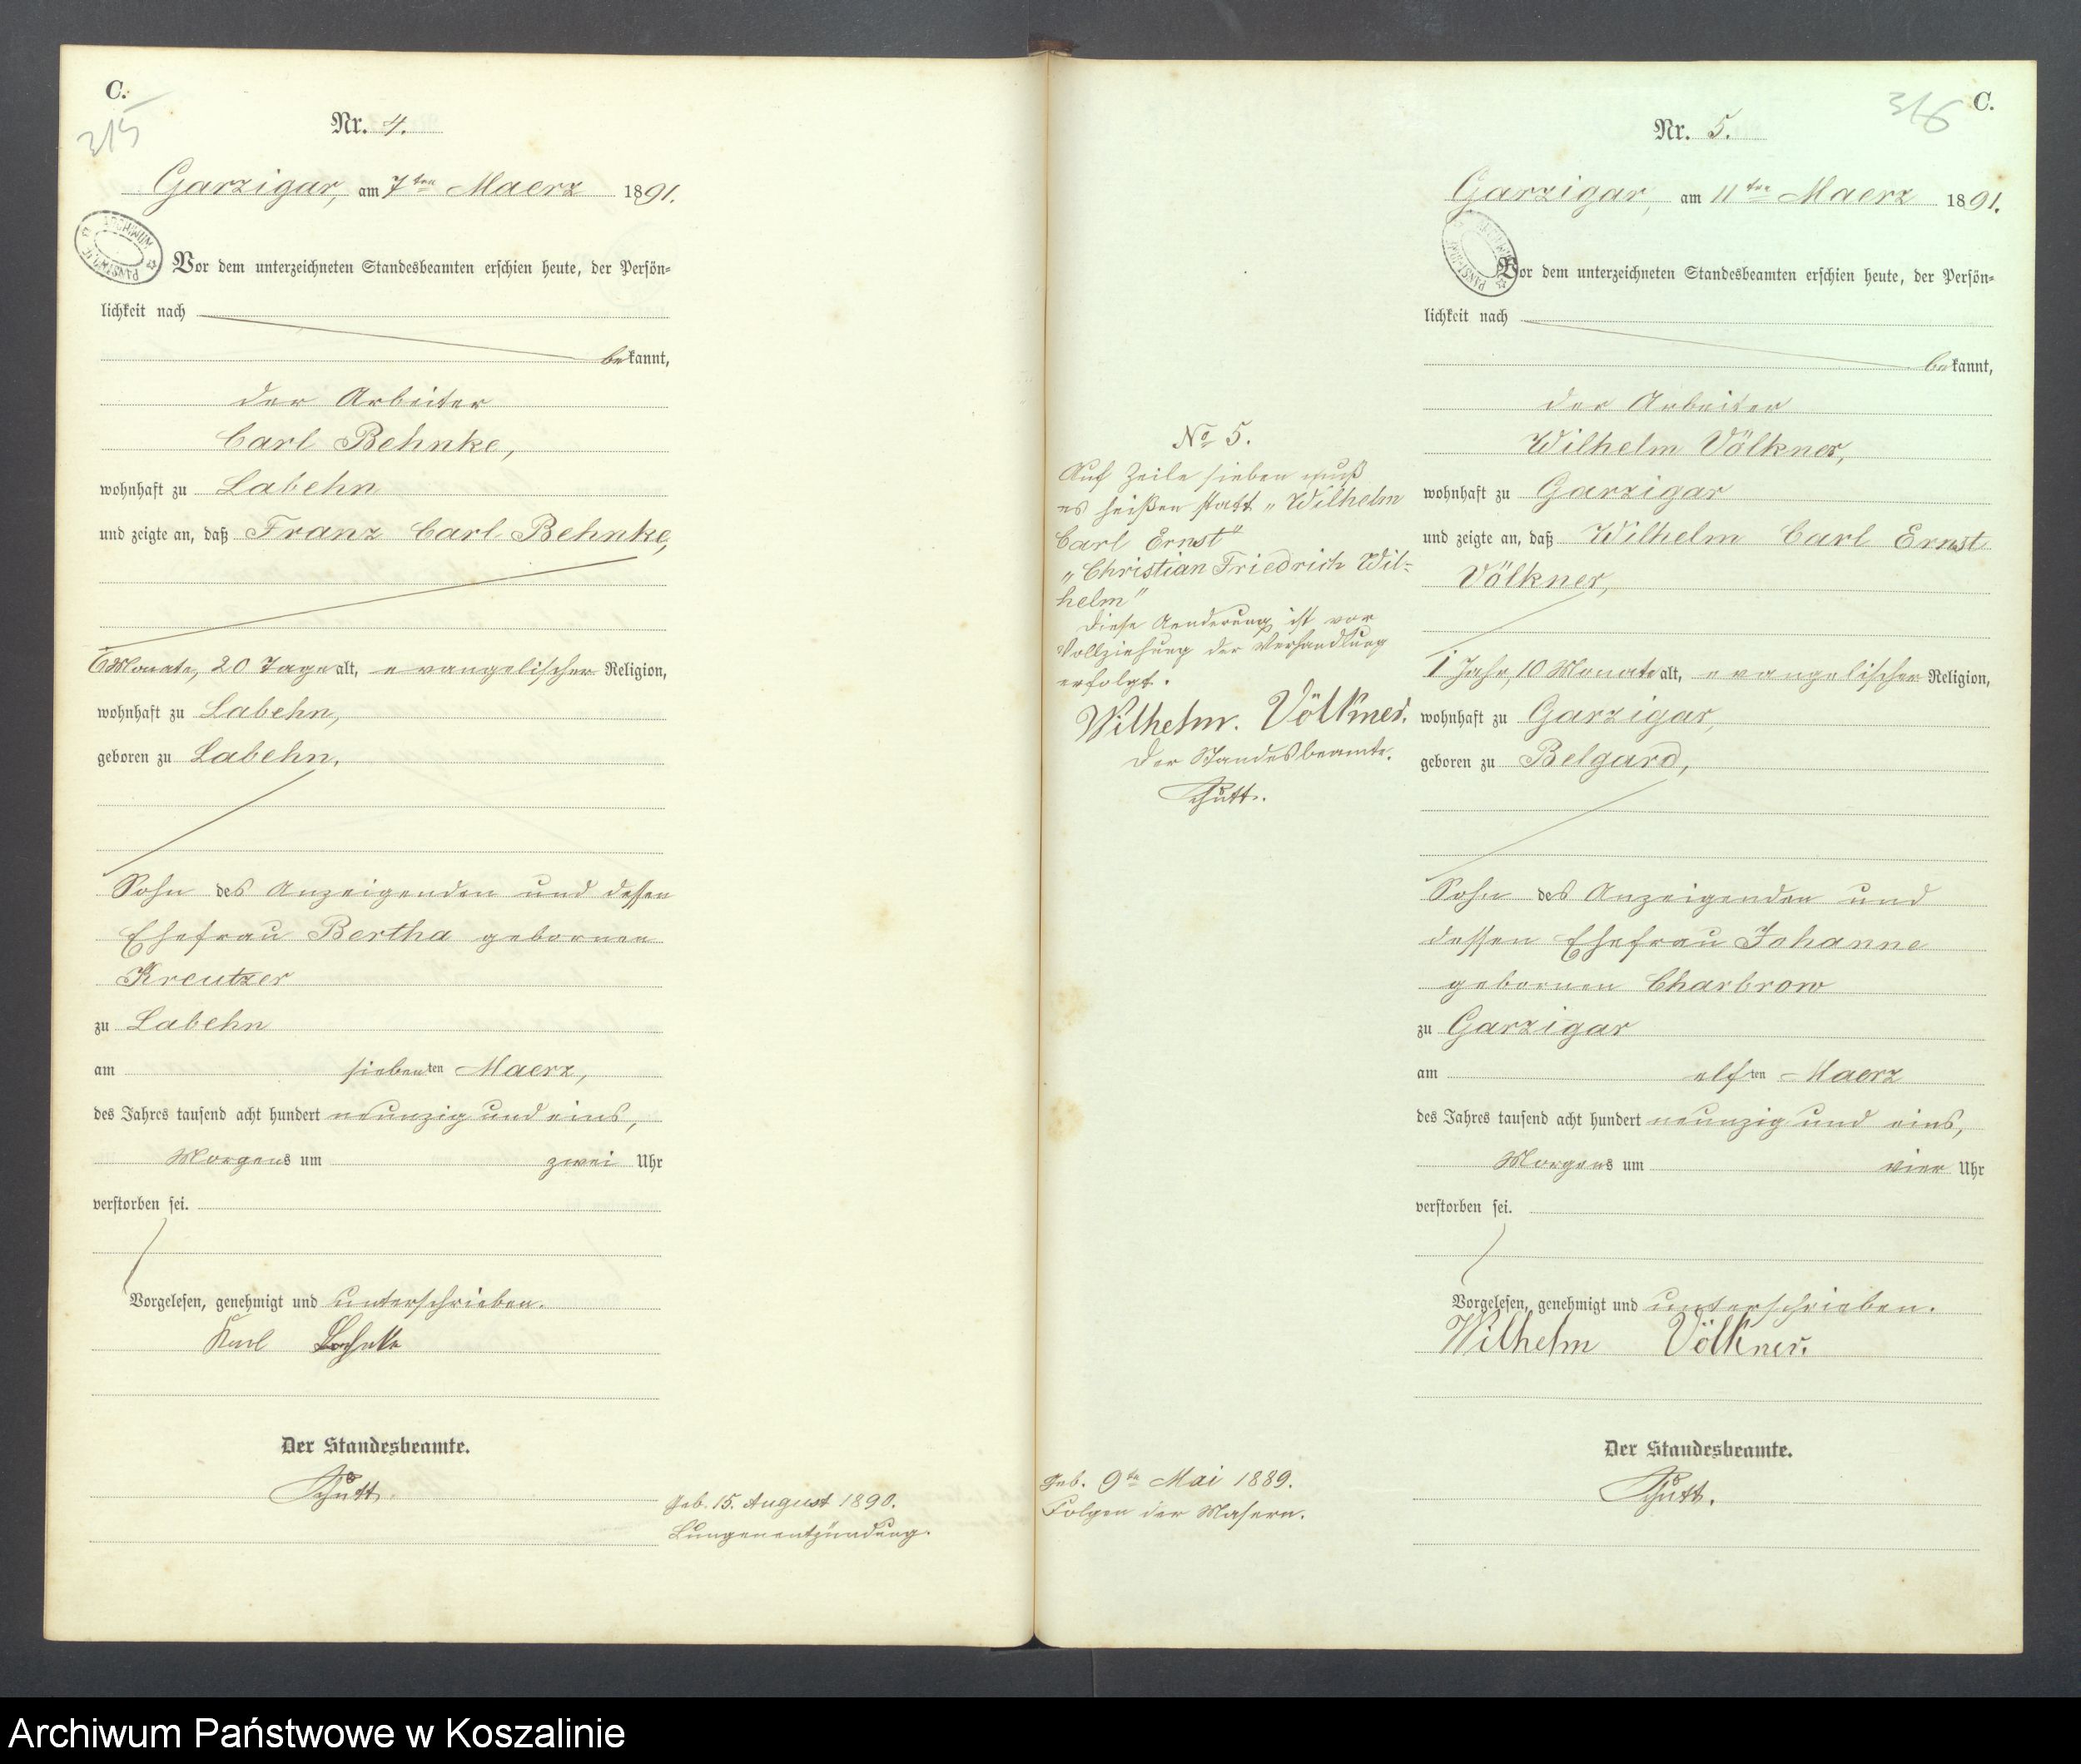 C.
315
Nr. 4.
Garzigar, am 7ten Maerz 1891.
ARCHIWUM PAŃSTWOWE
Vor dem unterzeichneten Standesbeamten erschien heute, der Persön-
lichkeit nach
bekannt,
der Arbeiter
Carl Behnke,
wohnhaft zu Labehn
und zeigte an, daß Franz Carl Behnke,
6 Monate, 20 Tage alt, evangelischer Religion,
wohnhaft zu Labehn,
geboren zu Labehn,
Sohn des Anzeigenden und dessen
Ehefrau Bertha gebornen
Kreutzer
zu Labehn
am siebenten Maerz,
des Jahres tausend acht hundert neunzig und eins,
Morgens um zwei Uhr
verstorben sei.
Vorgelesen, genehmigt und unterschrieben.
Karl Behnke
Der Standesbeamte.
Schütt.
Geb. 15. August 1890.
Lungenentzündung.
No 5.
Auf Zeile sieben muß
es heißen statt „Wilhelm
Carl Ernst"
„Christian Friedrich Wil-
helm"
Diese Aenderung ist vor
Vollziehung der Verhandlung
erfolgt.
Wilhelm. Völkner.
Der Standesbeamte.
Schütt.
Geb. 9te Mai 1889.
Folgen der Masern.
316
C.
Nr. 5.
Garzigar, am 11ten Maerz 1891.
Vor dem unterzeichneten Standesbeamten erschien heute, der Persön-
lichkeit nach
bekannt,
der Arbeiter
Wilhelm Völkner,
wohnhaft zu Garzigar
und zeigte an, daß Wilhelm Carl Ernst
Völkner,
1 Jahr, 10 Monate alt, evangelischer Religion,
wohnhaft zu Garzigar,
geboren zu Belgard,
Sohn des Anzeigenden und
dessen Ehefrau Johanne
gebornen Charbrow
zu Garzigar
am elften Maerz
des Jahres tausend acht hundert neunzig und eins,
Morgens um vier Uhr
verstorben sei.
Vorgelesen, genehmigt und unterschrieben.
Wilhelm Völkner.
Der Standesbeamte.
Schütt.
Archiwum Państwowe w Koszalinie